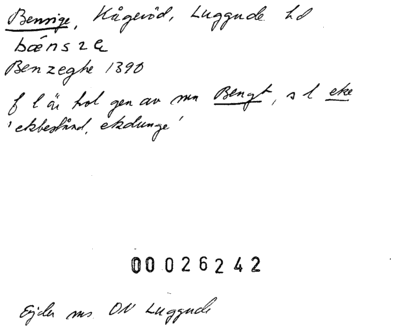 Bensige, Kågeröd, Luggude hd
bænsze
Benzeghe 1390
f l är hol gen av mn Bengt, s l eke
'ekbestånd, ekdunge'
00026242
Ejder ms. ON Luggude